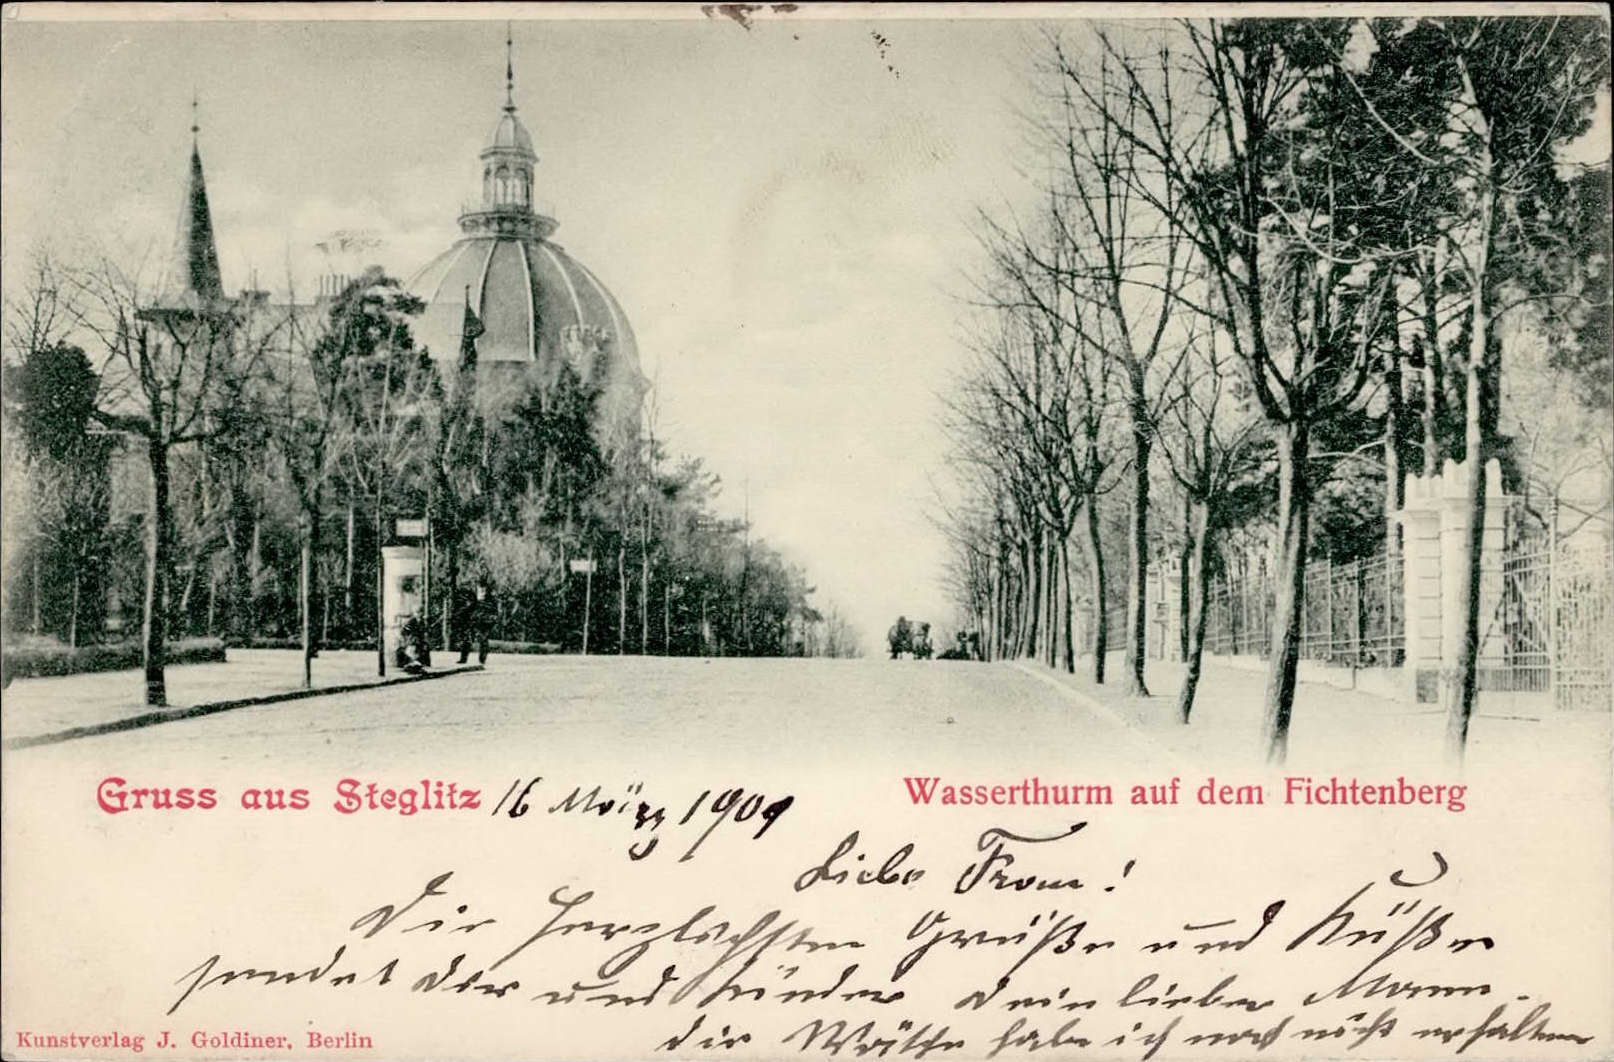 Gruss aus Steglitz 16 März 1901
Wasserthurm auf dem Fichtenberg
Liebe Frau!
Die herzlichsten Grüße und Küße
sendet Dir und Kinder Dein lieber Mann.
die Wäsche habe ich noch nicht erhalten
Kunstverlag J. Goldiner, Berlin